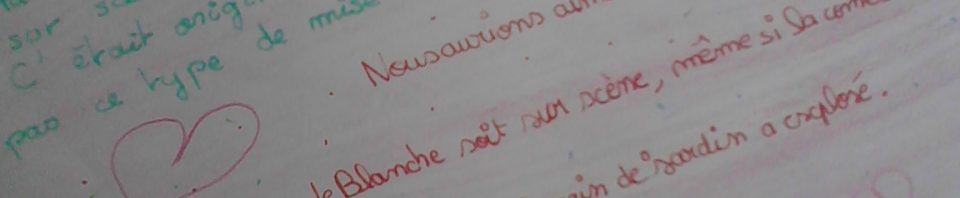 sur
C'était orig
pas ce type de mise
Nous aurions aim
Blanche soit sur scène, même si Sa com
in de jardin a exploré.